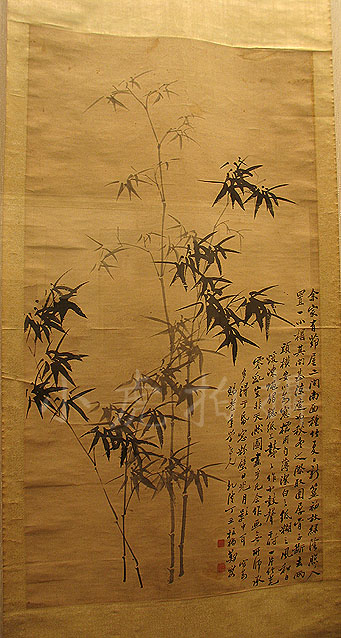 余家有茅屋二間南面種竹夏日新篁初放綠陰照人
置一小榻其中甚涼適也秋冬之際取圍屏骨子斷去兩
頭橫安以為窗櫺用勻薄潔白之紙糊之風和日
暖凍蠅觸窗紙上鼕鼕作小鼓聲于時一片竹影
零亂豈非天然圖畫乎凡吾畫竹無所師承
多得于紙窗粉壁日光月影中耳
板橋鄭燮